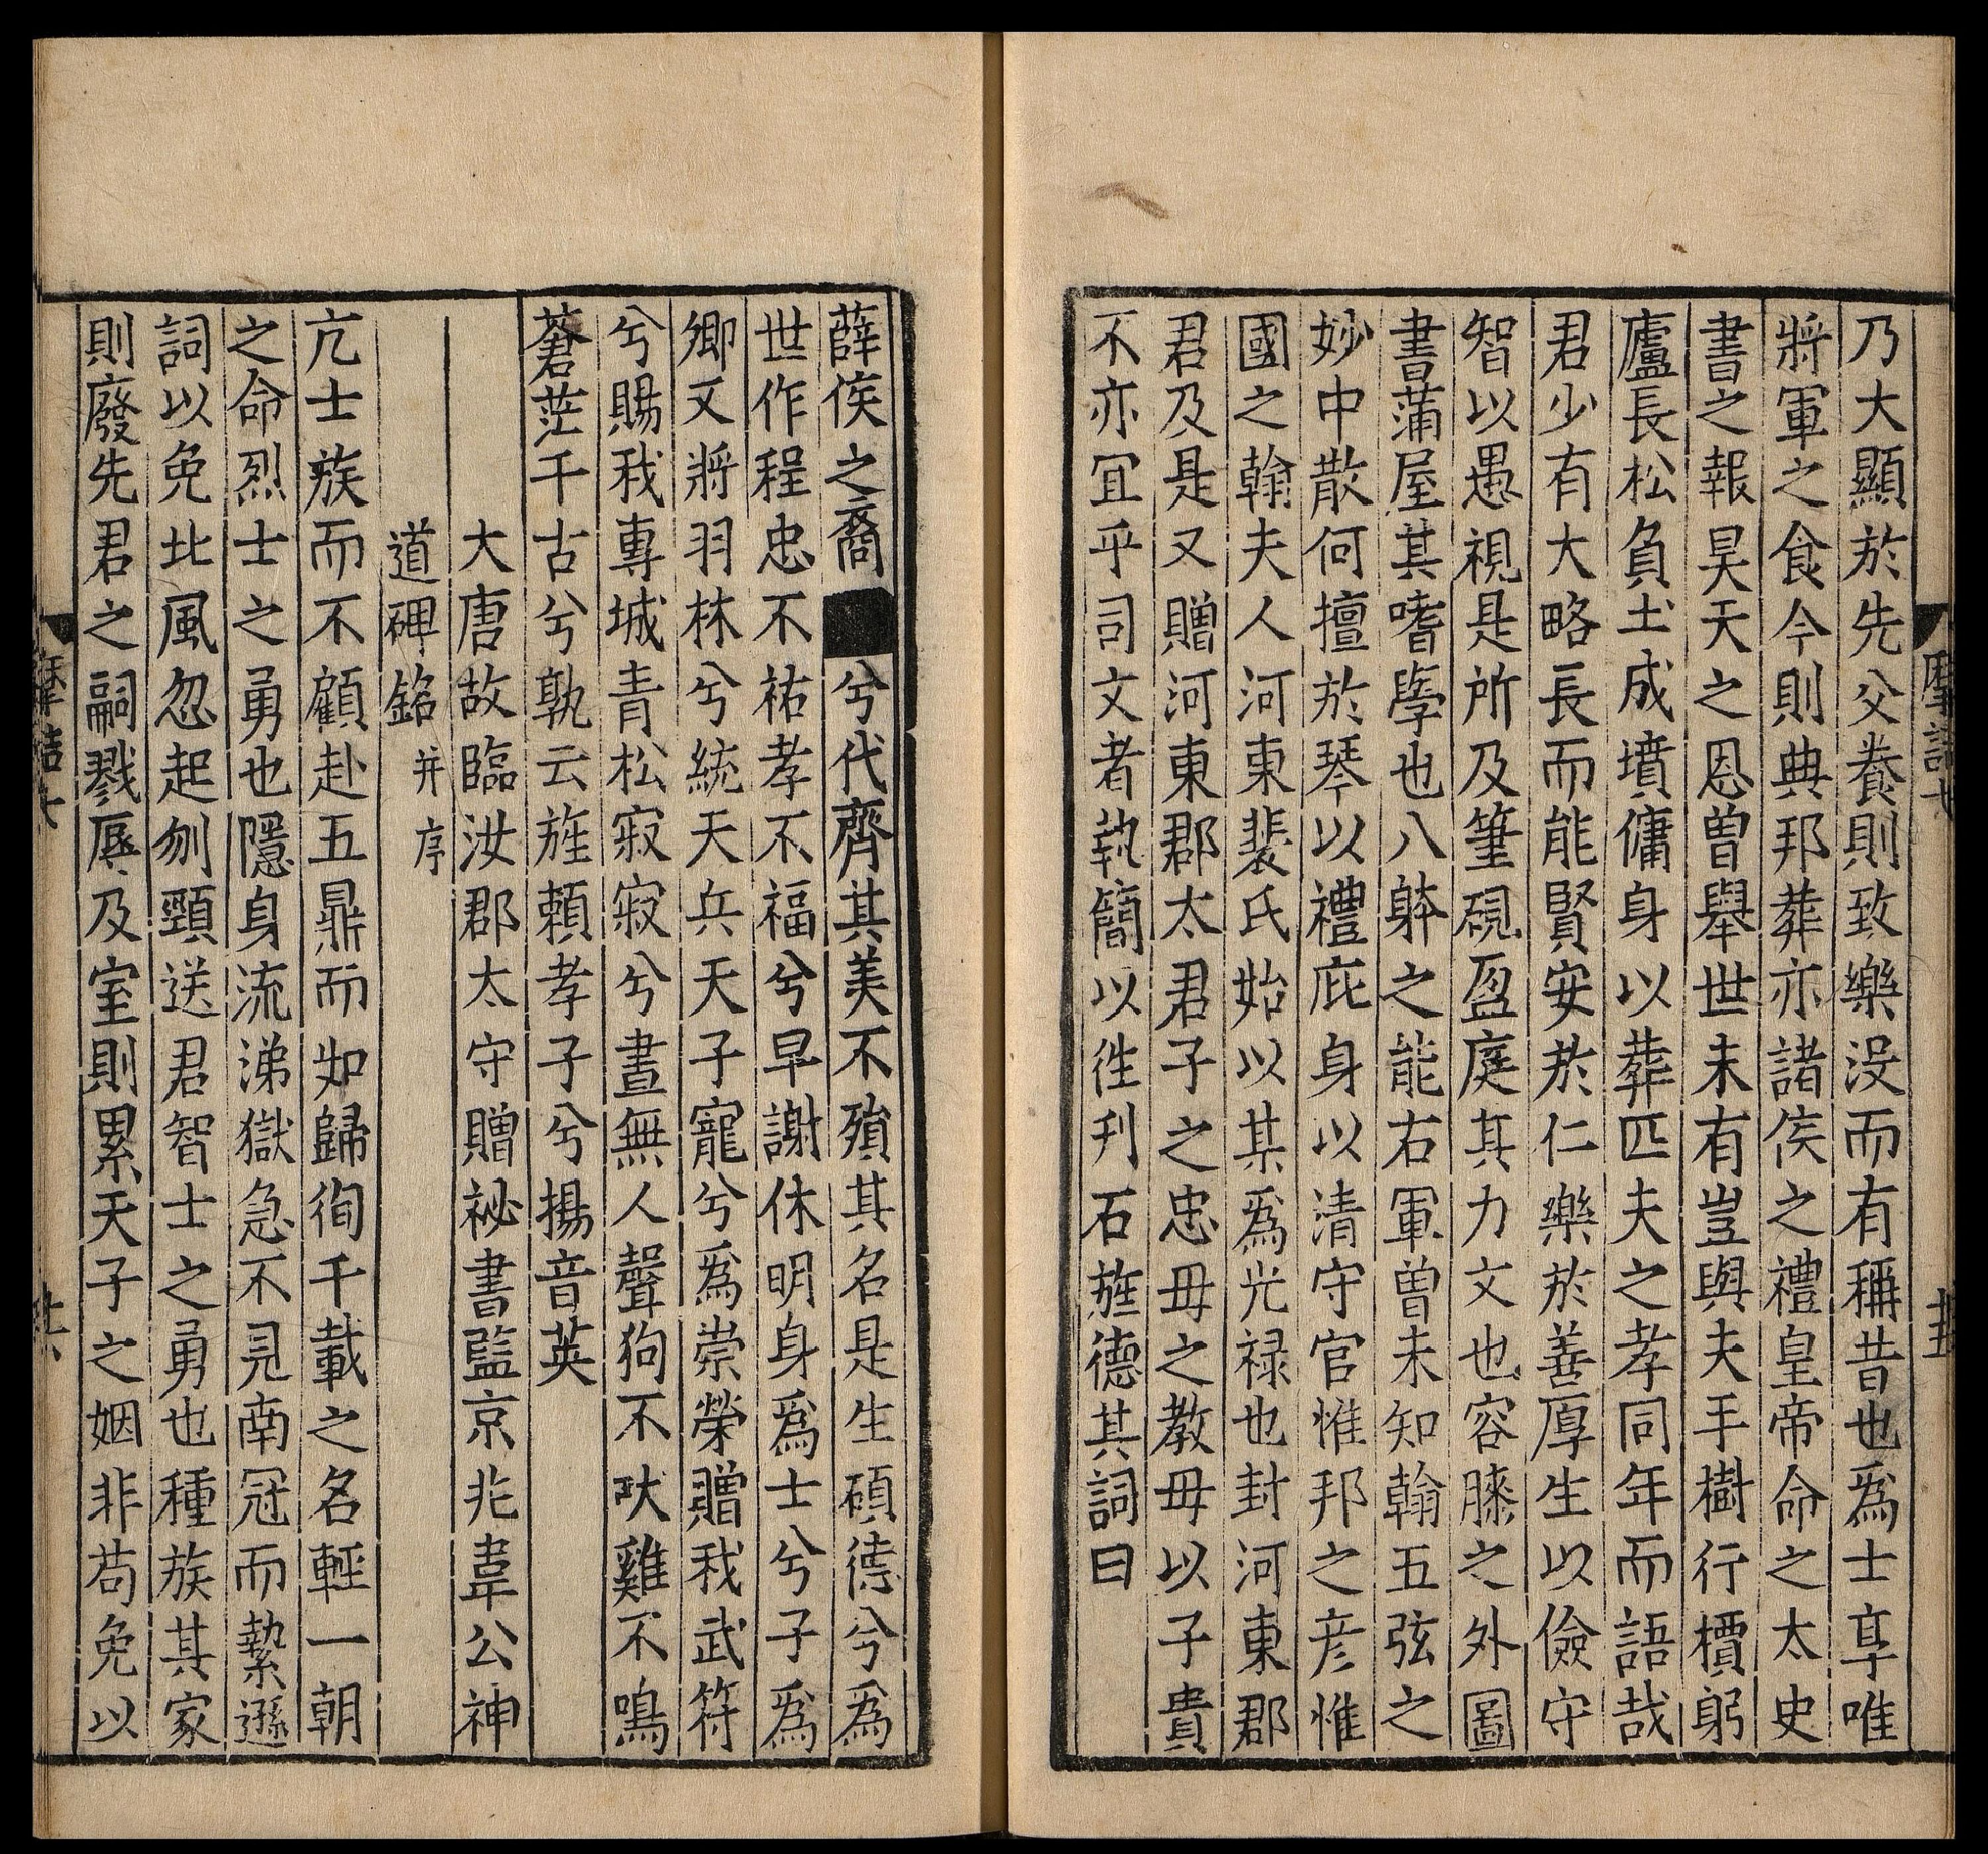 乃大顯於先父養則致樂没而有稱昔也爲士享唯
將軍之食今則典邦葬亦諸侯之禮皇帝命之太史
書之報昊天之恩曾舉世未有豈與夫手樹行檟躬
廬長松負土成墳傭身以葬匹夫之孝同年而語哉
君少有大略長而能賢安於仁樂於善厚生以儉守
智以愚視是所及筆硯盈庭其力文也容膝之外圖
書蒲屋其嗜學也八躰之能右軍曾未知翰五弦之
妙中散何擅於琴以禮庇身以清守官惟邦之彦惟
國之翰夫人河東裴氏始以某爲光禄也封河東郡
君及是又贈河東郡太君子之忠毋之教毋以子貴
不亦冝乎司文者執簡以徃刋石旌德其詞曰
薛侯之裔兮代齊其美不殞其名是生碩德兮爲
世作程忠不祐孝不福兮早謝休明身爲士兮子爲
卿又將羽林兮統天兵天子寵兮爲崇榮贈我武符
兮賜我專城青松寂寂兮晝無人聲狗不吠雞不鳴
蒼茫千古兮孰云旌賴孝子兮揚音英
大唐故臨汝郡太守贈祕書監京兆韋公神
道碑銘并序
亢士族而不顧赴五鼎而如歸徇千載之名輕一朝
之命烈士之勇也隱身流涕獄急不見南冠而縶遜
詞以免北風忽起刎頸送君智士之勇也種族其家
則廢先君之嗣戮辱及室則累天子之姻非苟免以